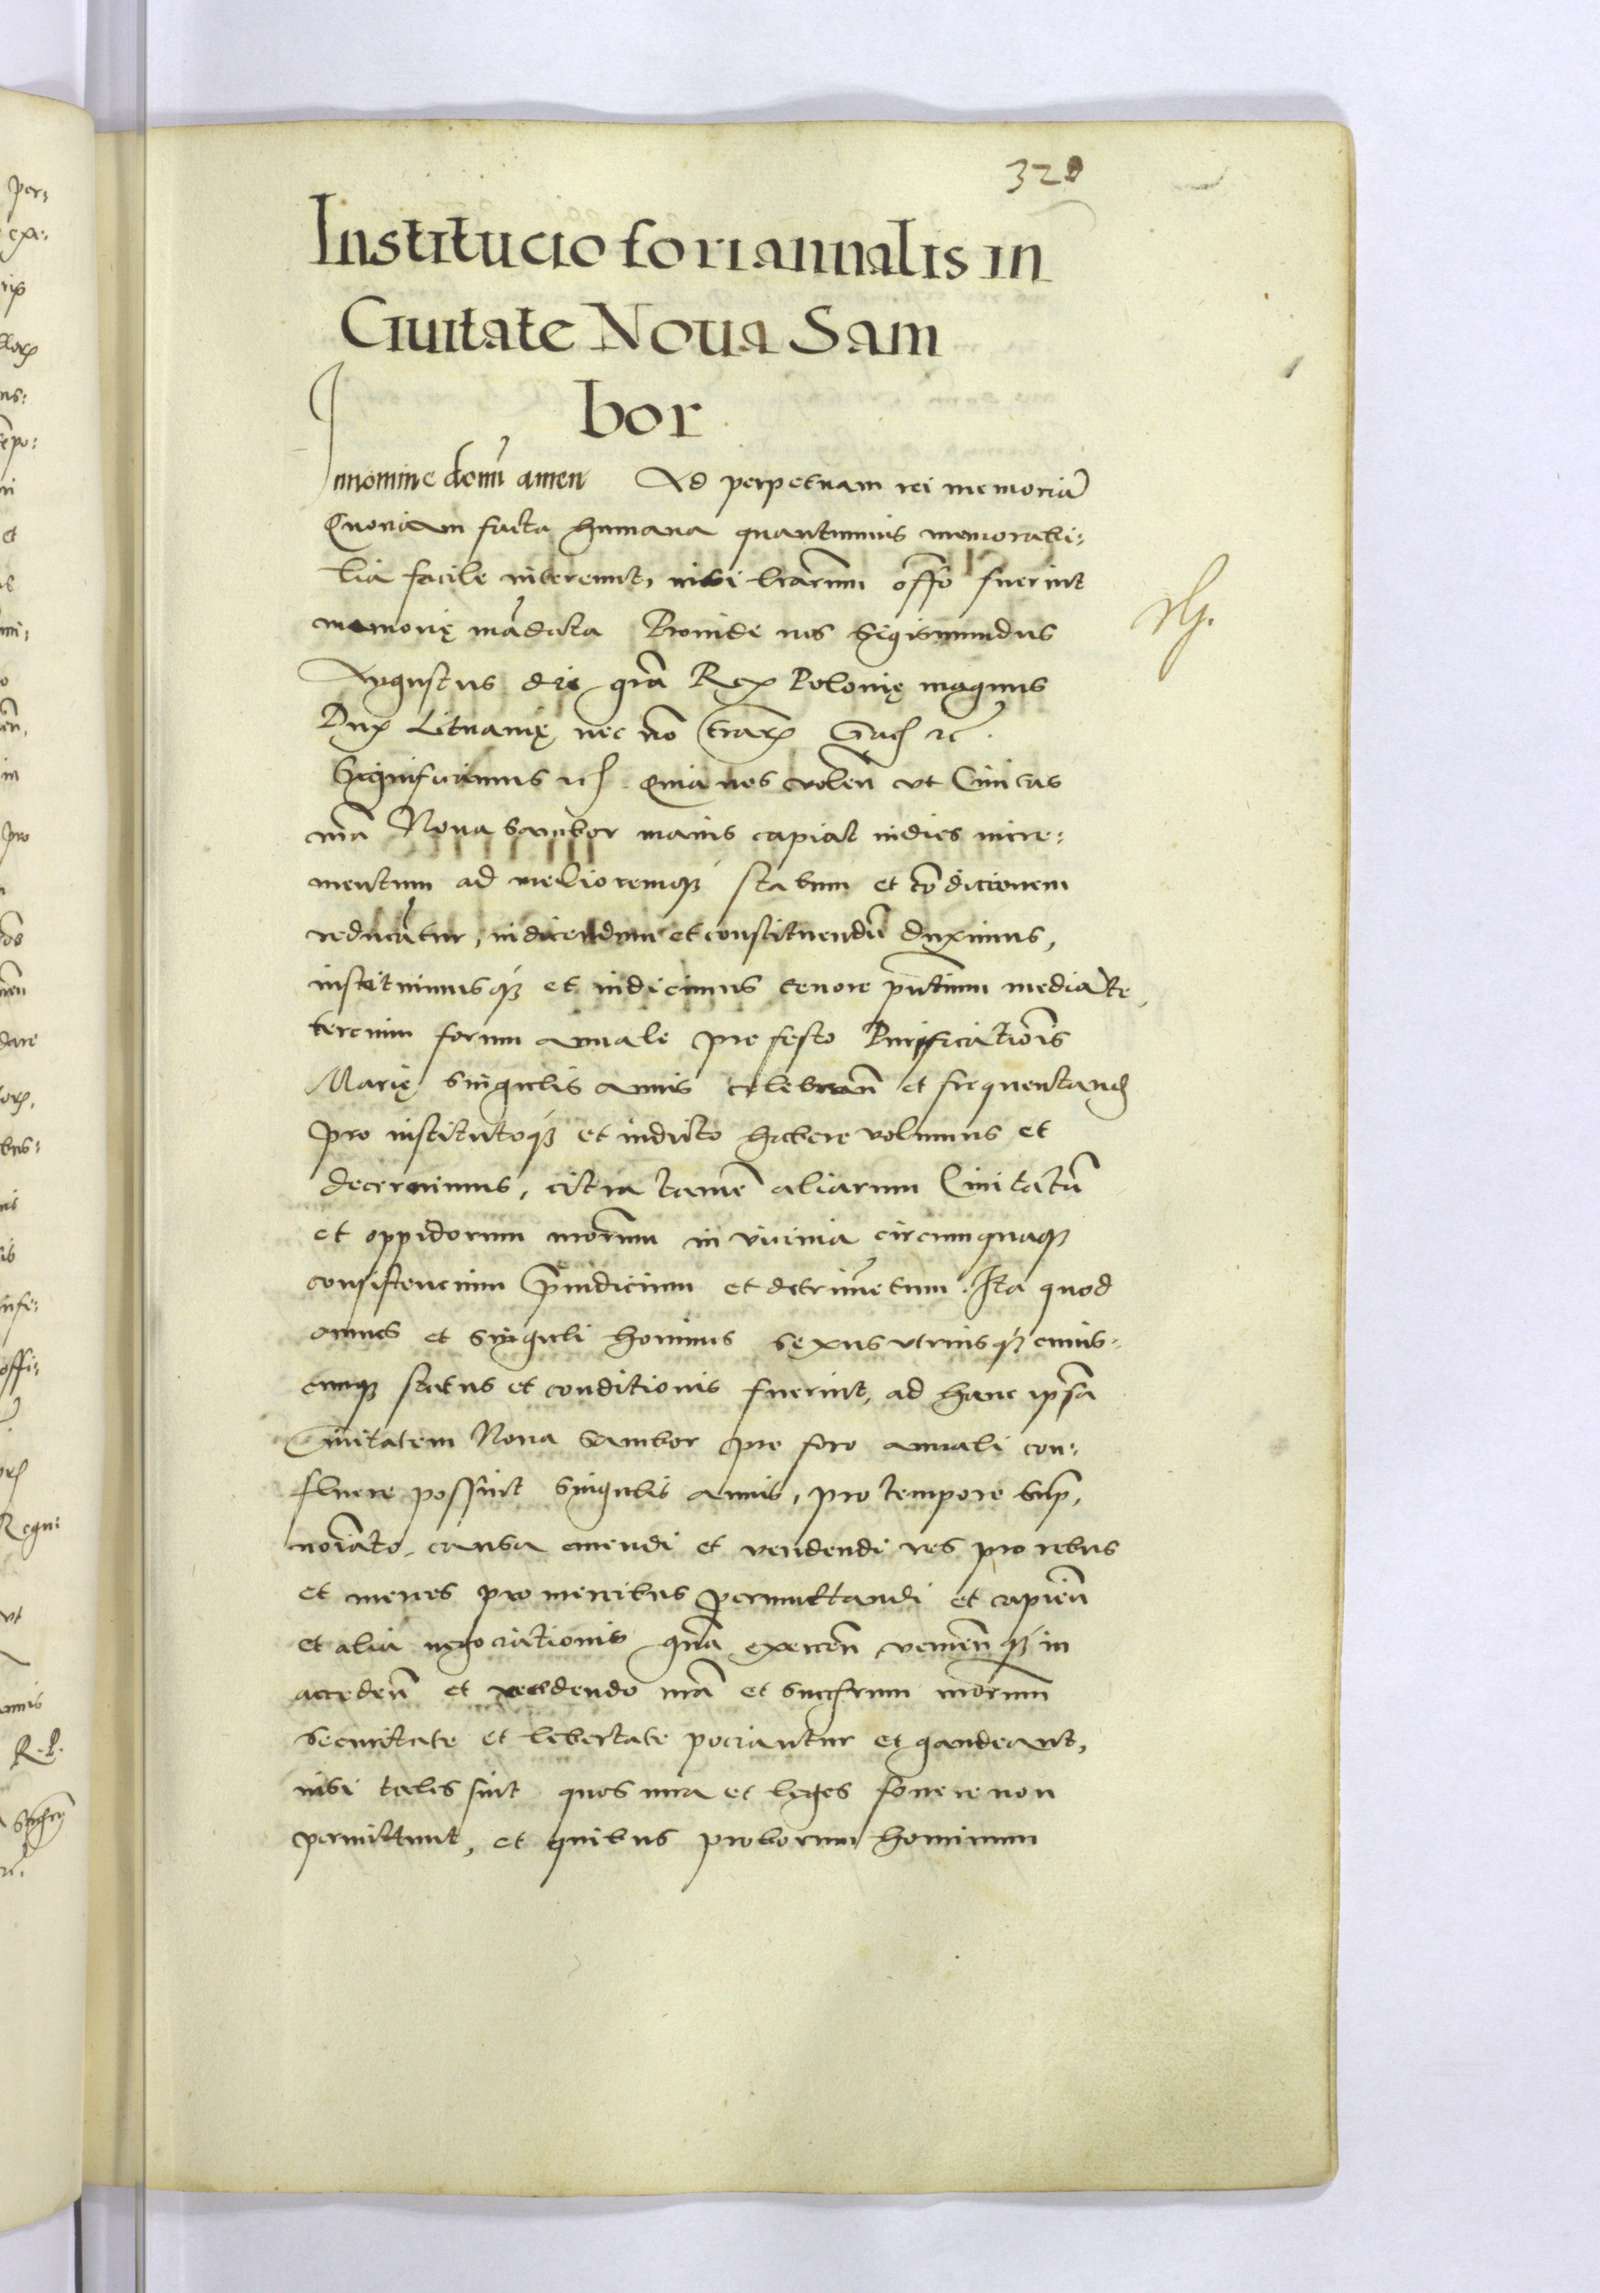 320
Institucio fori annalis in
Ciuitate Noua Sam
bor
In nomine domi amen Ad perpetuam rei memoriã
Quoniam facta humana quantumuis memorabi:
lia facile intereunt, nisi lrarum offõ fuerint
memorię mãdata Proinde nos Sigismundus
Augustus dei grã Rex Polonię magnus
Dux Lituanię nec nõ terrarꝝ etc.
Significamus etc. Quia nos volen̄ vt Ciuitas
nrã Noua Sambor maius capiat indies incre:
mentum ad melioremqꝫ statum et cõdicionem
reducãtur, indicendum et constituendũ duximus,
instituimusqꝫ et indicimus tenore pñtium mediãte
terenim forum annale pro festo Purificationis
Marię singulis annis celebran̄ et frequentand
pro institutoqꝫ et indicto habere volumus et
decernimus, citra tamẽ aliarum Ciuitatũ
et oppidorum nrõrum in vicinia circumquaqꝫ
consistencium preiudicium et detrimẽtum. Ita quod
omnes et singuli homines sexus vtriusqꝫ cuius-
cunqꝫ status et conditionis fuerint, ad hanc ipsã
Ciuitatem Noua Sambor pro foro annali con:
fluere possint singulis annis, pro tempore sup.
noĩato, causa emendi et vendendi res pro rebus
et merces pro mercibus permuttandi et capien̄
et alia negociationis gña exercen̄ venien̄qꝫ in
acceden̄ et recedendo nrã et succrum nrõrum
securitate et libertate pociantur et gaudeant,
nisi tales sint quos iura et leges fouere non
permittunt, et quibus proborum hominum